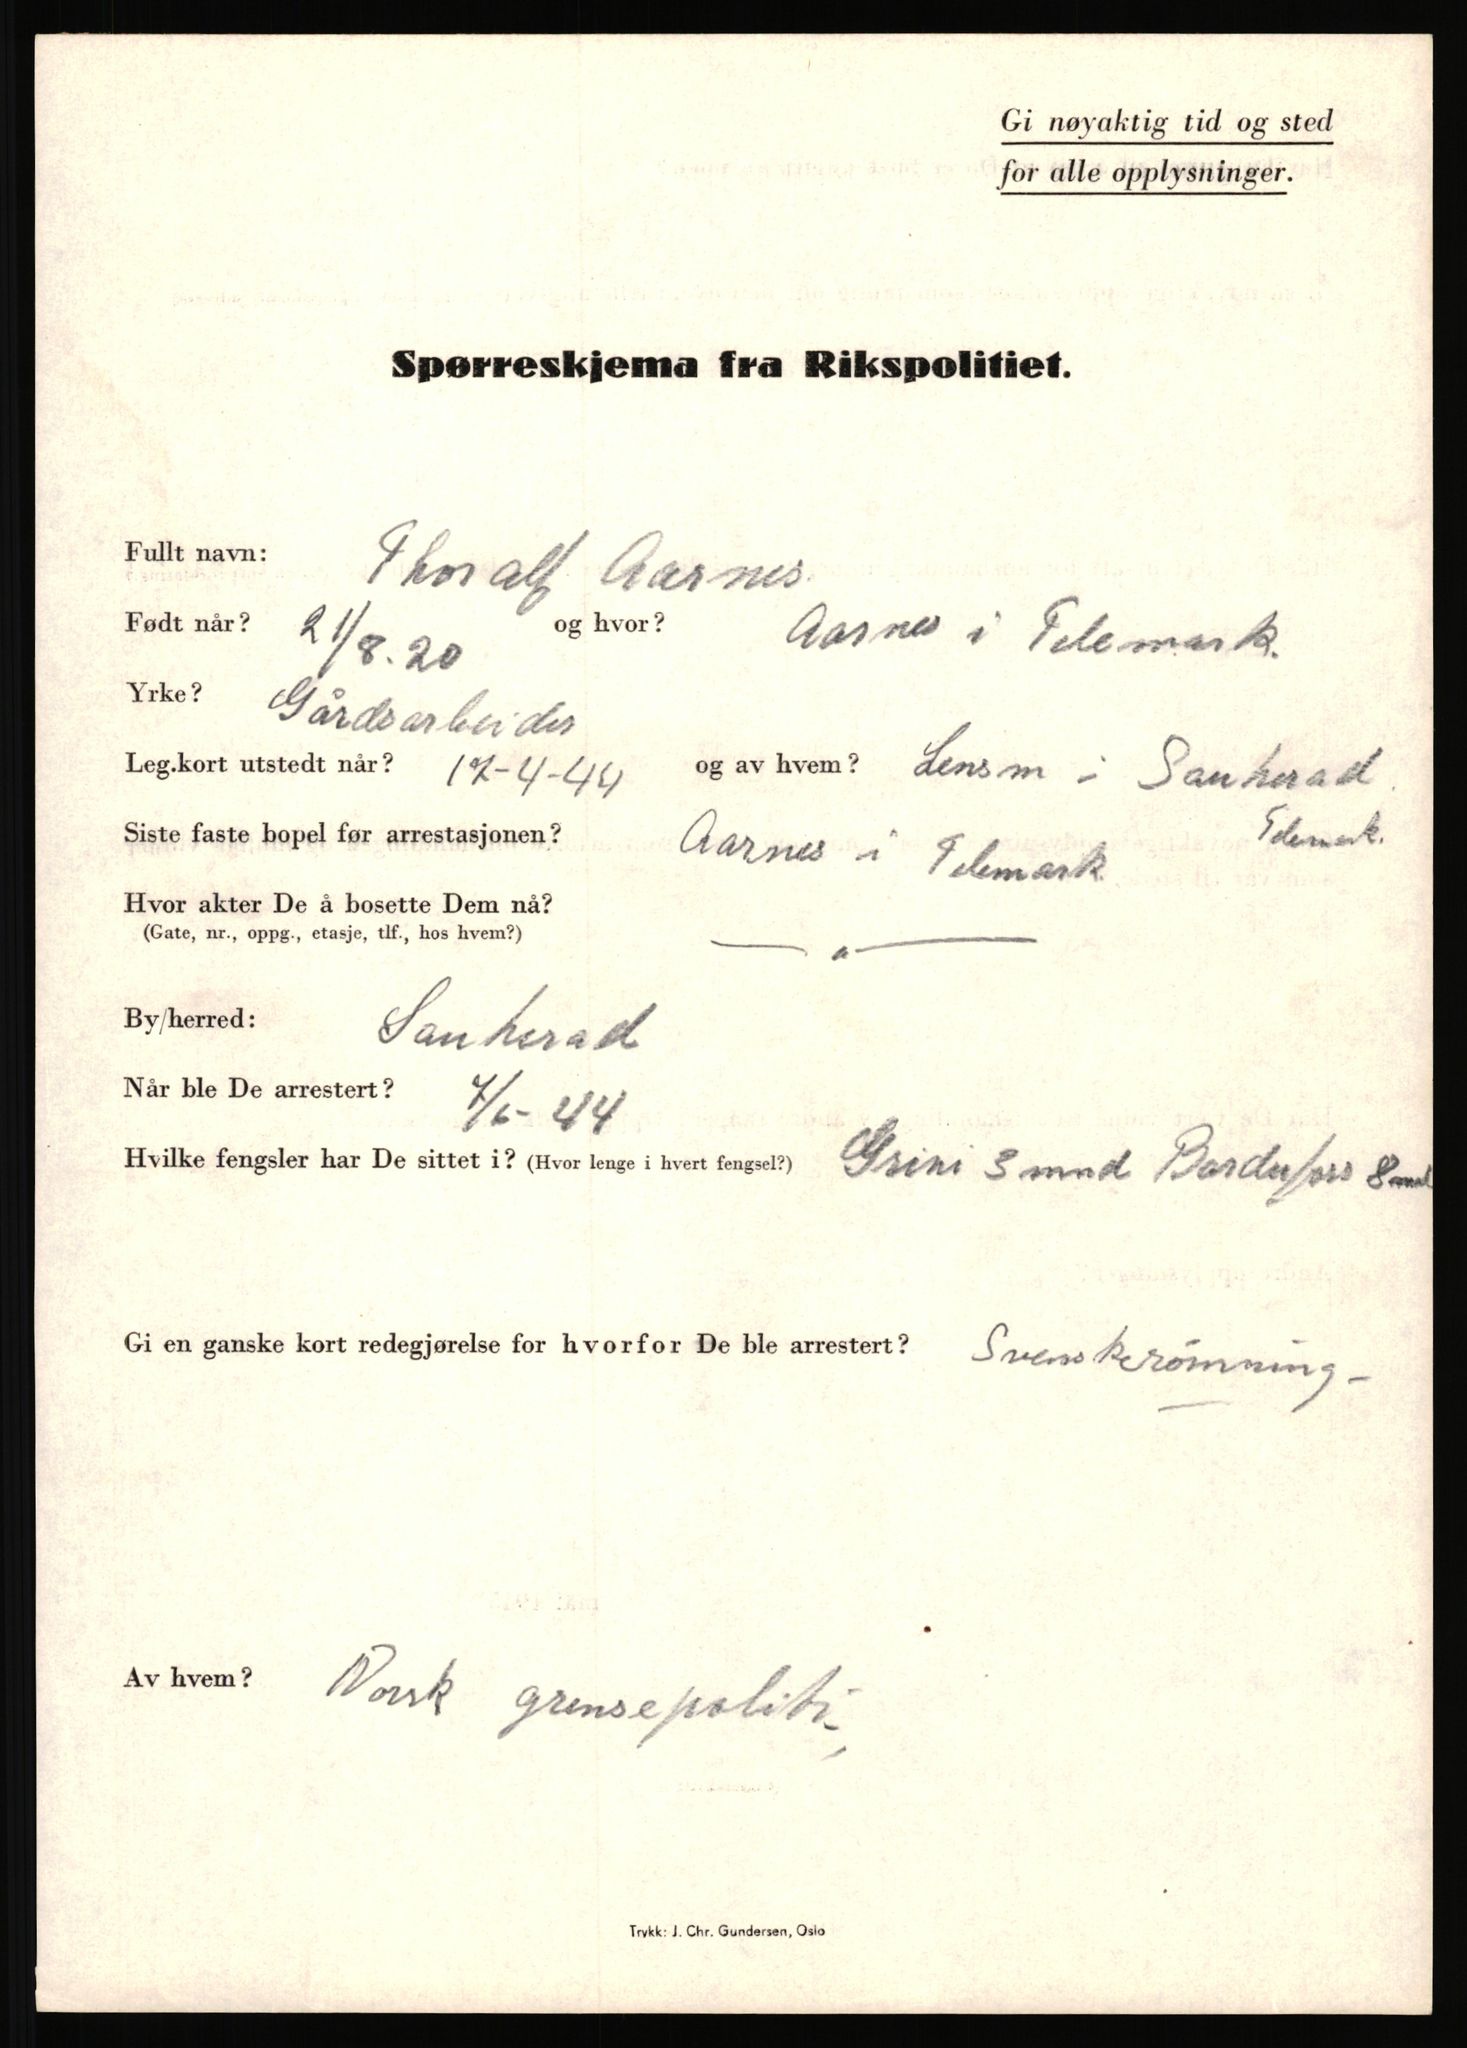 Gi nøyaktig tid og sted
for alle opplysninger.
Spørreskjema fra Rikspolitiet.
Fullt navn: Thoralf Aarnes.
Født når? 21/8.20 og hvor? Aarnes i Telemark.
Yrke? Gårdsarbeider
Leg.kort utstedt når? 17-4-44 og av hvem? Lensm i Sauherad.
Telemark.
Siste faste bopel før arrestasjonen? Aarnes i Telemark.
Hvor akter De å bosette Dem nå?
(Gate, nr., oppg., etasje, tlf., hos hvem?) — " —
By/herred: Sauherad
Når ble De arrestert? 7/6-44
Hvilke fengsler har De sittet i? (Hvor lenge i hvert fengsel?) Grini 3 mnd Bardufoss 8 mnd
Gi en ganske kort redegjørelse for hvorfor De ble arrestert? Svenskerömning-
Av hvem? Norsk grensepoliti
Trykk: J. Chr. Gundersen, Oslo